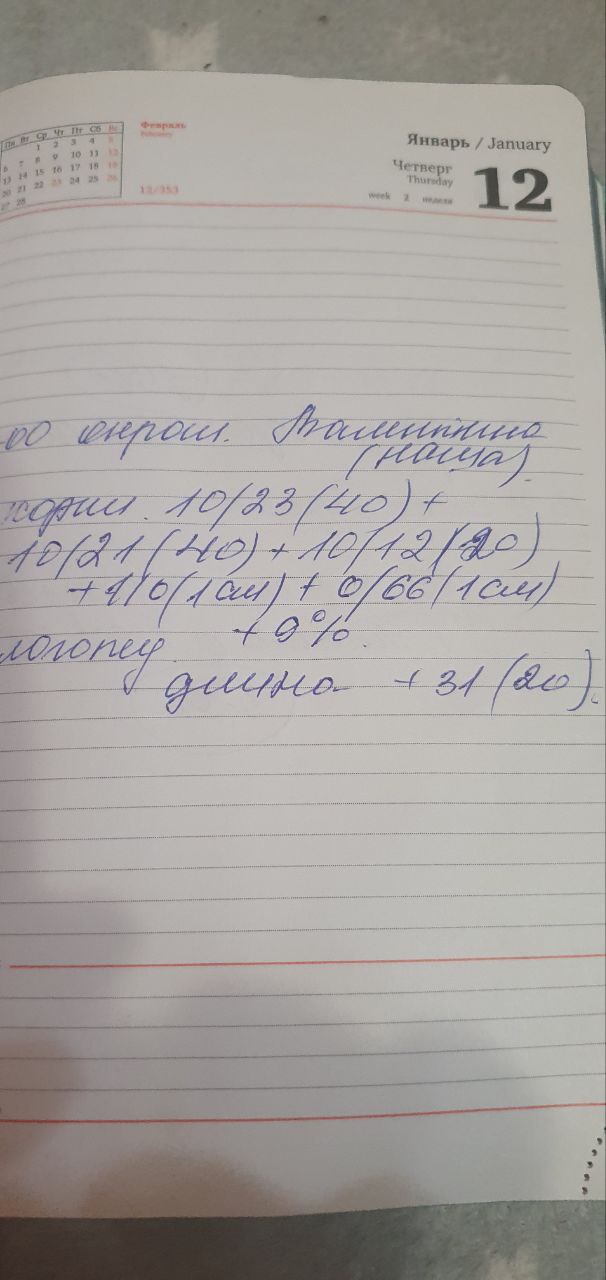 Пн Вт Ср Чт Пт Сб Вс
1 2 3 4 5
6 7 8 9 10 11 12
13 14 15 16 17 18 19
20 21 22 23 24 25 26
27 28
Февраль
February
12/353
Январь / January
Четверг
Thursday
week 2 неделя
12
00 окраш. Валентина
(наша)
корни. 10/23 (40) +
10/21 (40) + 10/12 (20)
+ 0 (1см) + 0/66 (1см)
+ 9%.
длина + 31 (20).